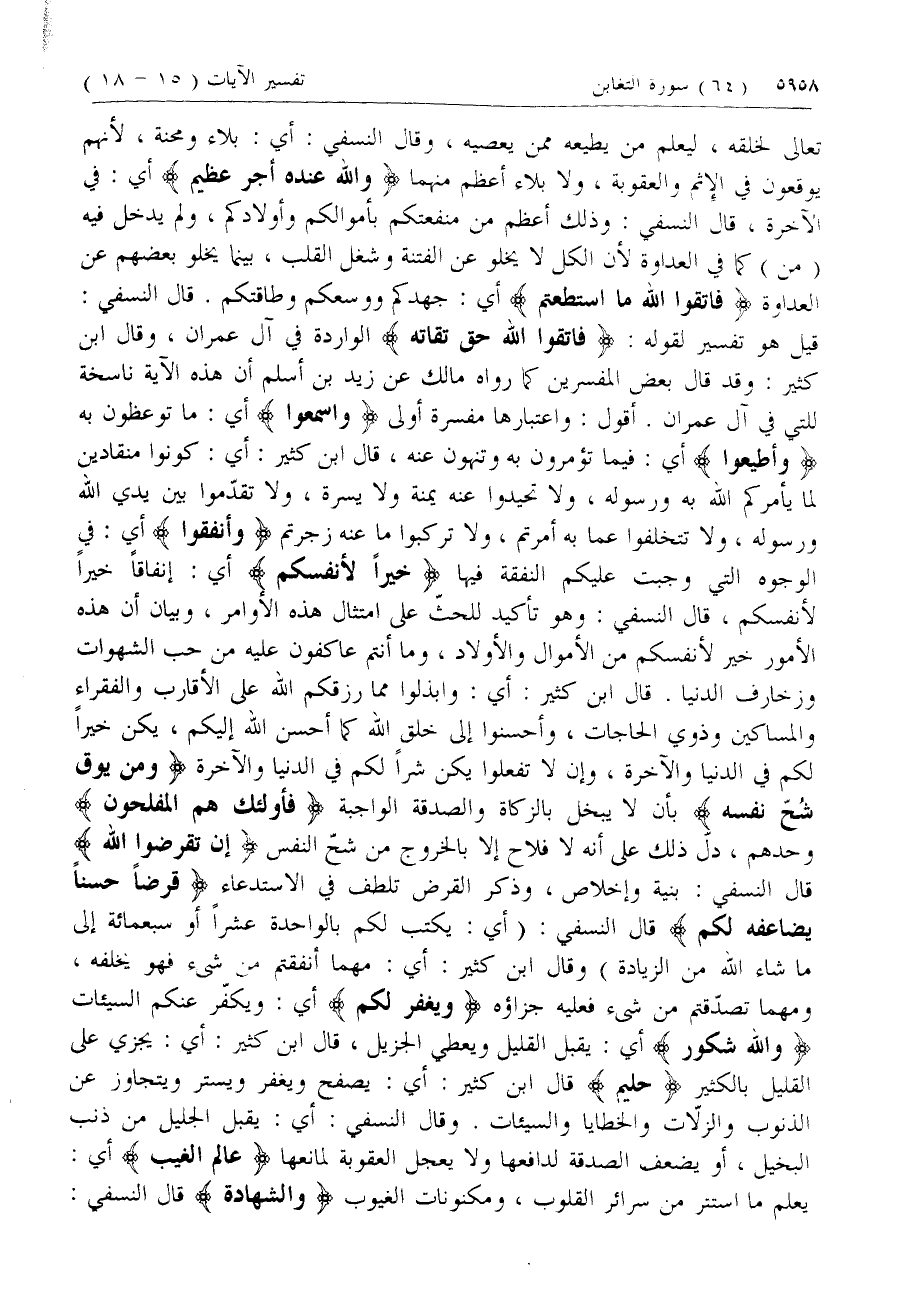 ٥٩٥٨ ( ٦٤ ) سورة التغابن تفسير الآيات ( ١٥ – ١٨ )
تعالى لخلقه ، ليعلم من يطيعه ممن يعصيه ، وقال النسفي : أي : بلاء ومحنة ، لأنهم
يوقعون في الإثم والعقوبة ، ولا بلاء أعظم منهما ﴿ والله عنده أجر عظيم ﴾ أي : في
الآخرة ، قال النسفي : وذلك أعظم من منفعتكم بأموالكم وأولادكم ، ولم يدخل فيه
( من ) كما في العداوة لأن الكل لا يخلو عن الفتنة وشغل القلب ، بينما يخلو بعضهم عن
العداوة ﴿ فاتقوا الله ما استطعتم ﴾ أي : جهدكم ووسعكم وطاقتكم . قال النسفي :
قيل هو تفسير لقوله : ﴿ فاتقوا الله حق تقاته ﴾ الواردة في آل عمران ، وقال ابن
كثير : وقد قال بعض المفسرين كما رواه مالك عن زيد بن أسلم أن هذه الآية ناسخة
للتي في آل عمران . أقول : واعتبارها مفسرة أولى ﴿ واسمعوا ﴾ أي : ما توعظون به
﴿ وأطيعوا ﴾ أي : فيما تؤمرون به وتنهون عنه ، قال ابن كثير : أي : كونوا منقادين
لما يأمركم الله به ورسوله ، ولا تحيدوا عنه يمنة ولا يسرة ، ولا تقدّموا بين يدي الله
ورسوله ، ولا تتخلفوا عما به أمرتم ، ولا تركبوا ما عنه زجرتم ﴿ وأنفقوا ﴾ أي : في
الوجوه التي وجبت عليكم النفقة فيها ﴿ خيراً لأنفسكم ﴾ أي : إنفاقاً خيراً
لأنفسكم ، قال النسفي : وهو تأكيد للحثّ على امتثال هذه الأوامر ، وبيان أن هذه
الأمور خير لأنفسكم من الأموال والأولاد ، وما أنتم عاكفون عليه من حب الشهوات
وزخارف الدنيا . قال ابن كثير : أي : وابذلوا مما رزقكم الله على الأقارب والفقراء
والمساكين وذوي الحاجات ، وأحسنوا إلى خلق الله كما أحسن الله إليكم ، يكن خيراً
لكم في الدنيا والآخرة ، وإن لا تفعلوا يكن شراً لكم في الدنيا والآخرة ﴿ ومن يوق
شُحّ نفسه ﴾ بأن لا يبخل بالزكاة والصدقة الواجبة ﴿ فأولئك هم المفلحون ﴾
وحدهم ، دلّ ذلك على أنه لا فلاح إلا بالخروج من شحّ النفس ﴿ إن تقرضوا الله ﴾
قال النسفي : بنية وإخلاص ، وذكر القرض تلطف في الاستدعاء ﴿ قرضاً حسناً
يضاعفه لكم ﴾ قال النسفي : ( أي : يكتب لكم بالواحدة عشراً أو سبعمائة إلى
ما شاء الله من الزيادة ) وقال ابن كثير : أي : مهما أنفقتم من شىء فهو يخلفه ،
ومهما تصدّقتم من شىء فعليه جزاؤه ﴿ ويغفر لكم ﴾ أي : ويكفّر عنكم السيئات
﴿ والله شكور ﴾ أي : يقبل القليل ويعطي الجزيل ، قال ابن كثير : أي : يجزي على
القليل بالكثير ﴿ حليم ﴾ قال ابن كثير : أي : يصفح ويغفر ويستر ويتجاوز عن
الذنوب والزلّات والخطايا والسيئات . وقال النسفي : أي : يقبل الجليل من ذنب
البخيل ، أو يضعف الصدقة لدافعها ولا يعجل العقوبة لمانعها ﴿ عالم الغيب ﴾ أي :
يعلم ما استتر من سرائر القلوب ، ومكنونات الغيوب ﴿ والشهادة ﴾ قال النسفي :